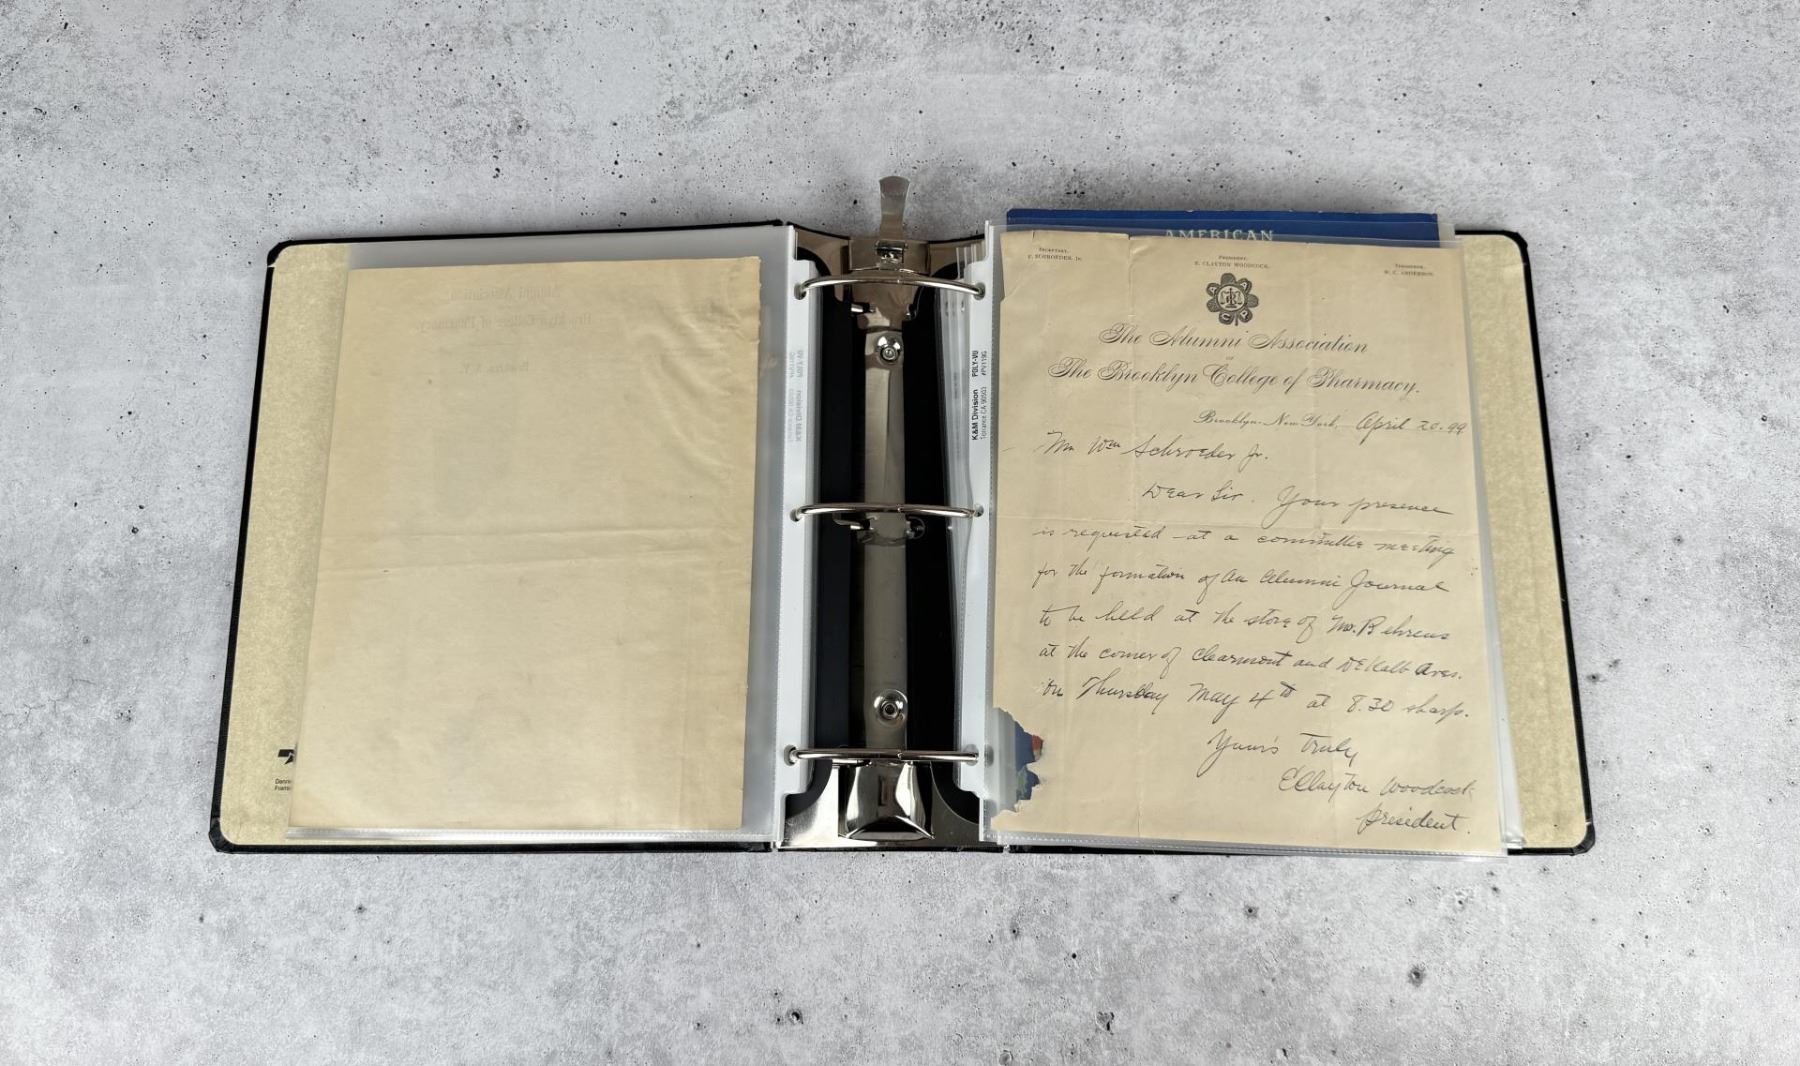 Alumni Association
Brooklyn College of Pharmacy
Brooklyn, N.Y.
K&M Division POLY-VU
Torrance CA 90503 #PV119G
AMERICAN
SECRETARY,
SCHROEDER, Jr.
PRESIDENT,
E. CLAYTON WOODCOCK.
TREASURER,
W. C. ANDERSON.
The Alumni Association
OF
The Brooklyn College of Pharmacy.
Brooklyn, New York, April 20. 99
Mr Wm Schroeder Jr.
Dear Sir. Your presence
is requested at a committee meeting
for the formation of an Alumni Journal
to be held at the store of Mr. Behrens
at the corner of Clearmont and DeKalb Aves.
on Thursday May 4th at 8.30 sharp.
Your's Truly
E Clayton Woodcock
President.